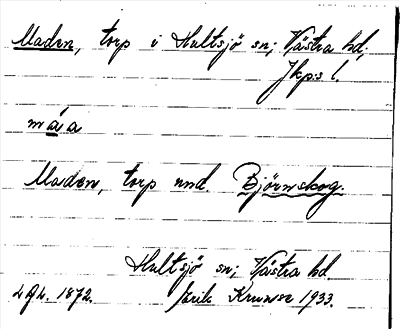 Maden, torp i Hultsjö sn; Västra hd;
Jkps l.
måa
Maden, torp und. Björnskog.
Hultsjö sn; Västra hd.
1872. Erik Kruuse 1933.